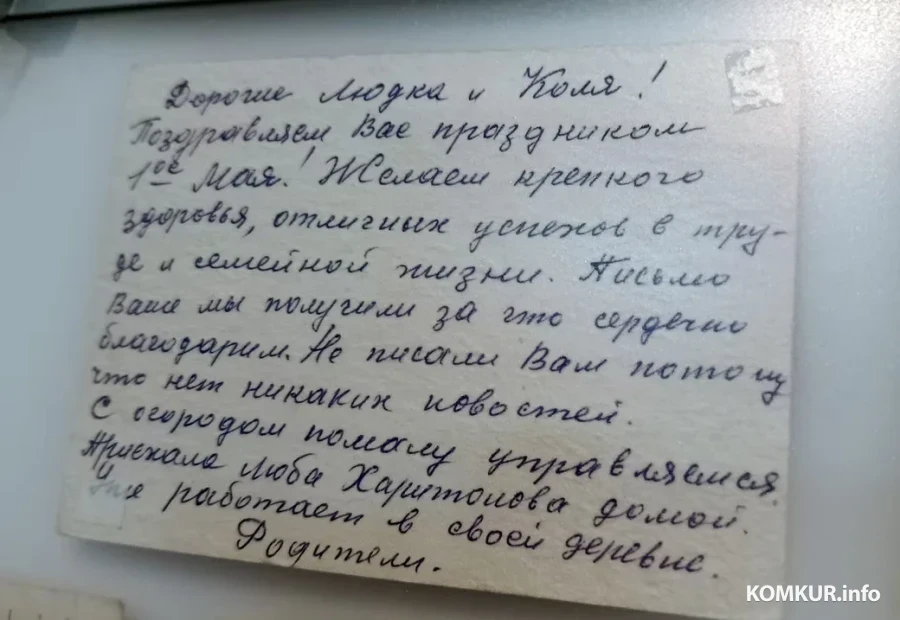 Дорогие Людка и Коля!
Поздравляем Вас праздником
1ое Мая! Желаем крепкого
здоровья, отличных успехов в тру-
де и семейной жизни. Письмо
Ваше мы получили за что сердечно
благодарим. Не писали Вам потому
что нет никаких новостей.
С огородом помалу управляемся.
Приехала Люба Харитонова домой.
работает в своей деревне.
Родители.
KOMKUR.info